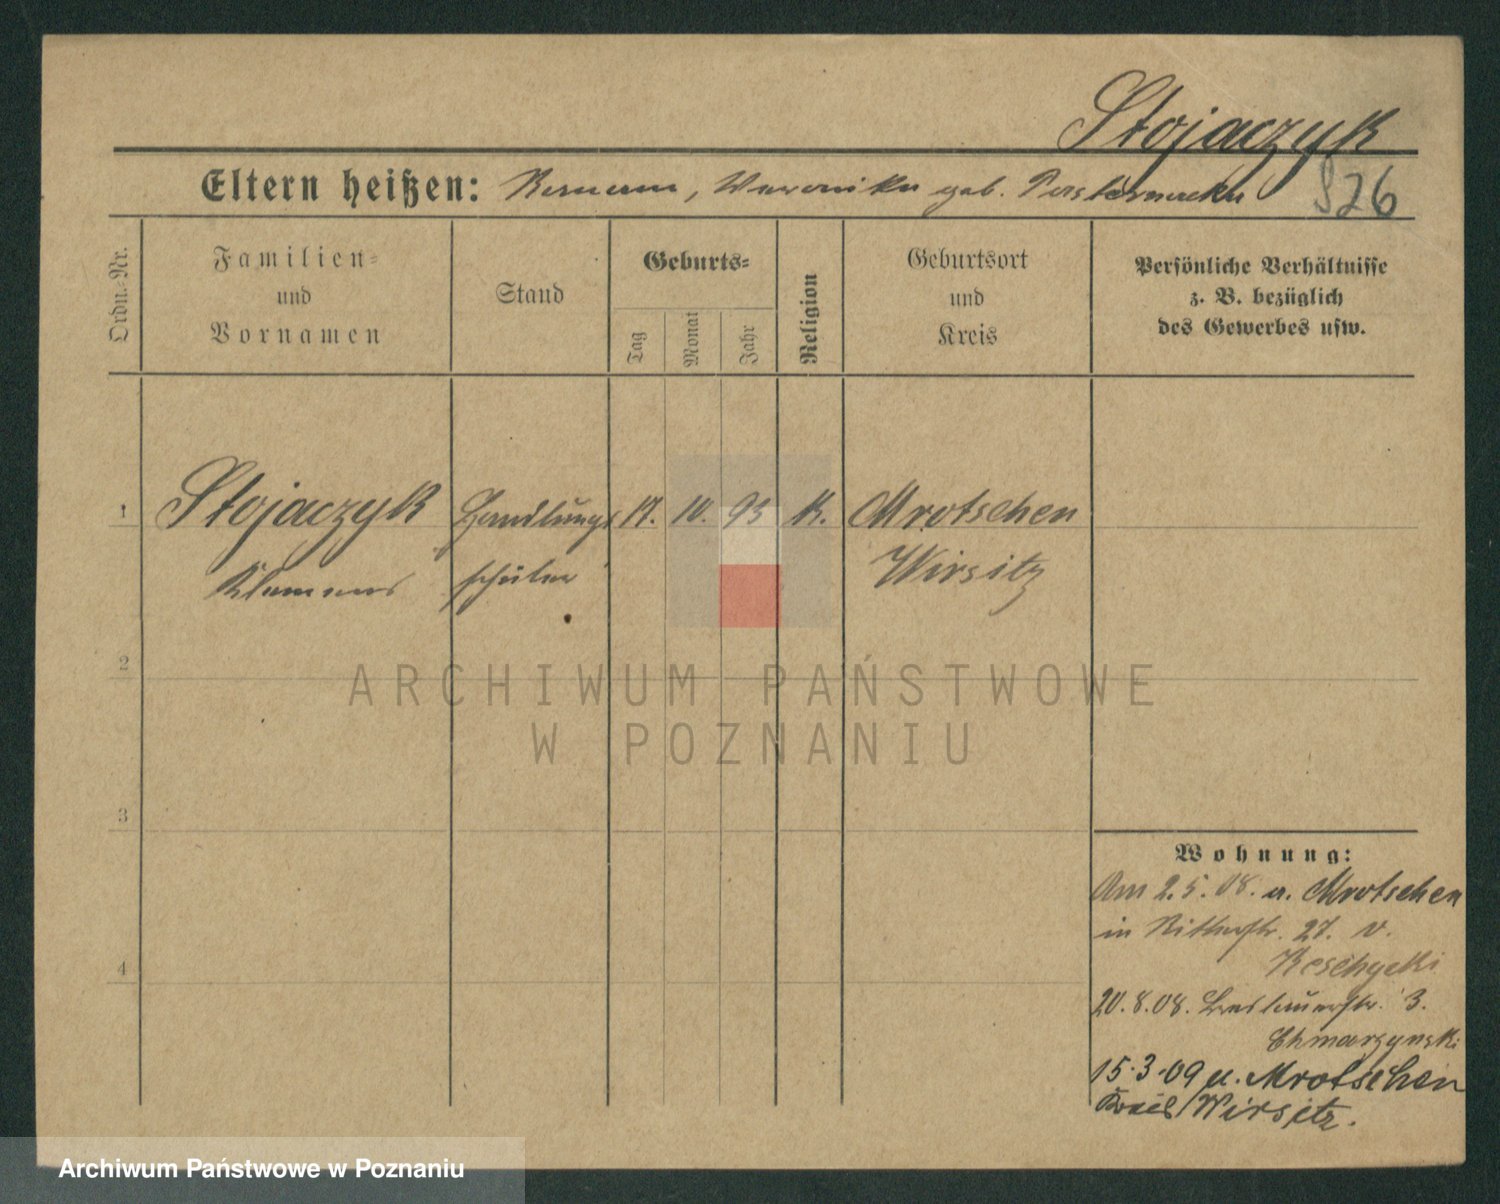 Stojaczyk
Eltern heißen: Roman, Weronika geb.
926
Ordn.-Nr.
Familien-
und
Vornamen
Stand
Geburts-
Tag
Monat
Jahr
Religion
Geburtsort
und
Kreis
Persönliche Verhältnisse
z. B. bezüglich
des Gewerbes usw.
1 Stojaczyk Handlungs 17. 10. 93 K. Mrotschen
Klemens schüler Wirsitz
2
3
4
ARCHIWUM PAŃSTWOWE
W POZNANIU
Wohnung:
Am 2.5.08. a. Mrotschen
in Ritterstr. 27. v.
20.8.08. Breslauerstr. 3.
Chmarzynski
15.3.09 n. Mrotschen
Kreis Wirsitz.
Archiwum Państwowe w Poznaniu